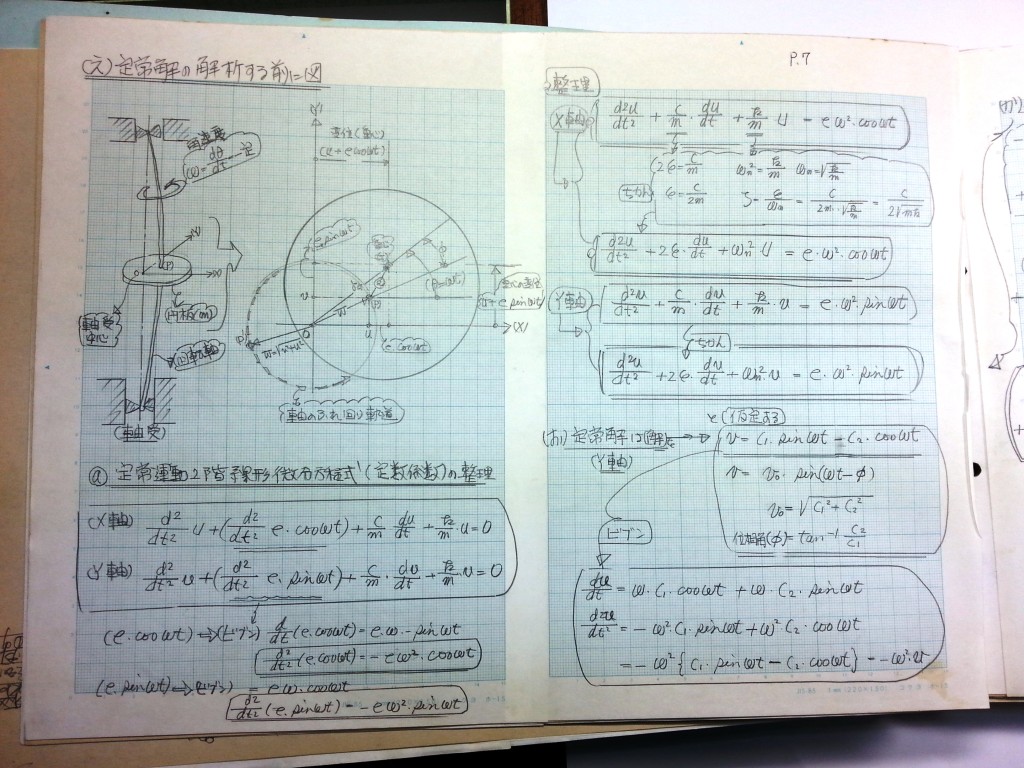 (え) 定常解の解析する前に図
角速度
ω = dθ/dt 一定
(Y)
重心(重心)
(u + e cosωt)
e sinωt
v + e sinωt
(X)
e cosωt
軸受中心
円板(m)
回転軸
(軸受)
軸のふれ回り軌道
ⓐ 定常運動2階線形微分方程式(定数係数)の整理
(X軸) d²/dt² u + (d²/dt² e·cosωt) + c/m du/dt + k/m·u = 0
(Y軸) d²/dt² v + (d²/dt² e·sinωt) + c/m·dv/dt + k/m·v = 0
(e·cosωt) ⇒ (ビブン) d/dt(e·cosωt) = e·ω·-sinωt
d²/dt²(e·cosωt) = -eω²·cosωt
(e·sinωt) ⇒ (ビブン) = eω·cosωt
d²/dt²(e·sinωt) = -eω²·sinωt
P.7
整理
X軸 d²u/dt² + c/m·du/dt + k/m u = eω²·cosωt
2ε = c/m ωn² = k/m ωn = √k/m
ちかん ε = c/2m ζ = ε/ωn = c/2m·√k/m = c/2√mk
d²u/dt² + 2ε·du/dt + ωn² u = e·ω²·cosωt
Y軸 d²v/dt² + c/m·dv/dt + k/m·v = e·ω²·sinωt
ちかん
d²v/dt² + 2ε·dv/dt + ωn²·v = e·ω²·sinωt
と仮定する
(お) 定常解は(解)を v = C₁·sinωt - C₂·cosωt
(Y軸) v = v₀·sin(ωt-φ)
v₀ = √C₁² + C₂²
ビブン 位相角(φ) = tan⁻¹ C₂/C₁
dv/dt = ω·C₁·cosωt + ω·C₂·sinωt
d²v/dt² = -ω²·C₁·sinωt + ω²·C₂·cosωt
= -ω²{C₁·sinωt - C₂·cosωt} = -ω²·v